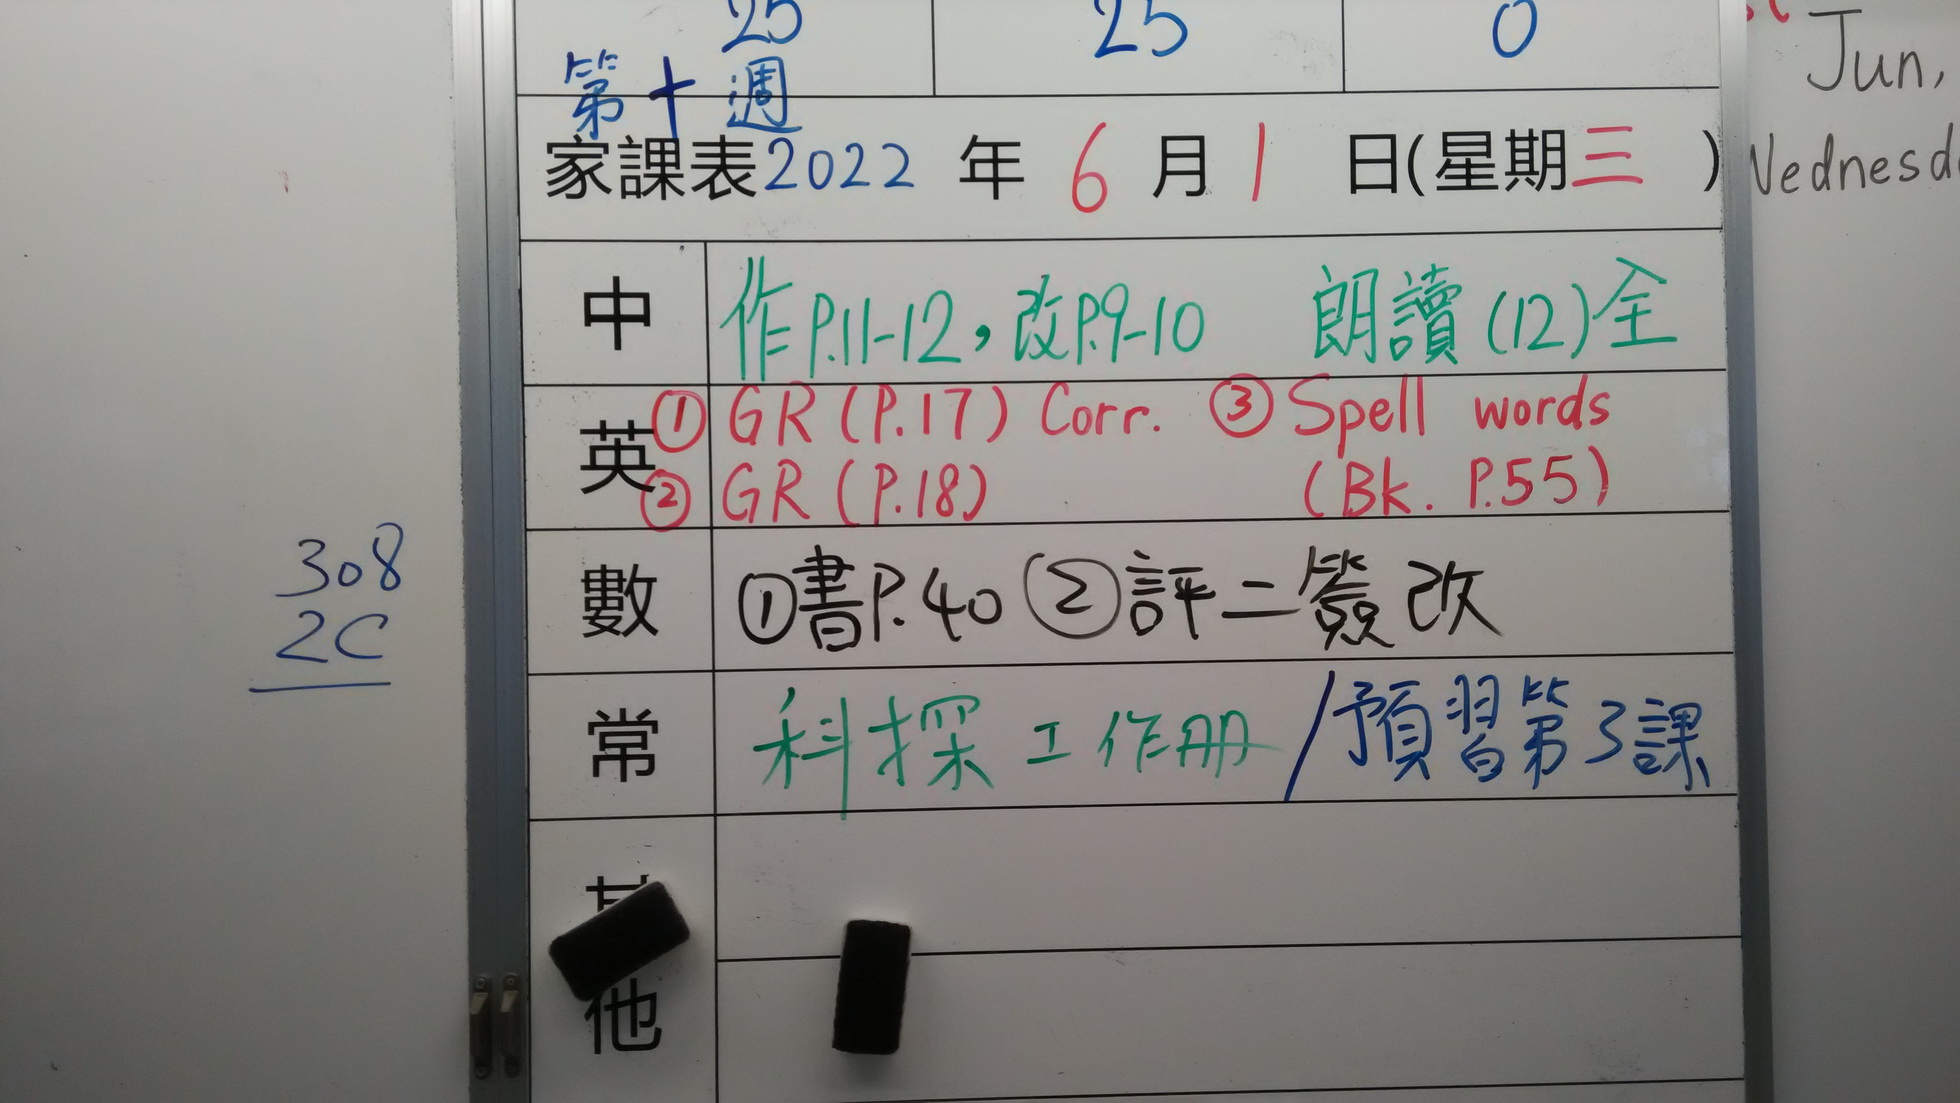 25 25 0
第十週
家課表2022 年 6 月 1 日(星期三 )
Jun,
Wednesd
中 作P.11-12,改P.9-10 朗讀(12)全
英 ① GR (P.17) Corr. ③ Spell words
② GR (P.18) (Bk. P.55)
數 ①書P.40 ②評二簽改
常 科探工作冊/預習第3課
其
他
308
2C